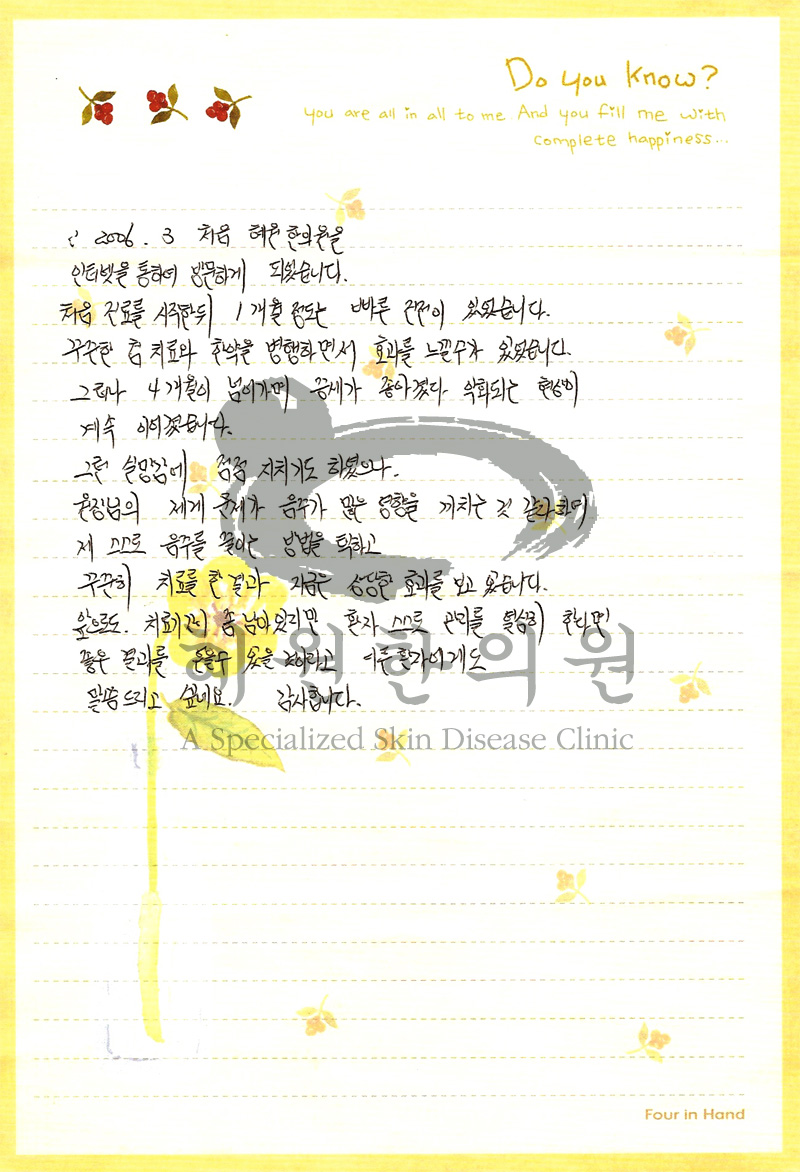 Do you know?
you are all in all to me. And you fill me with
complete happiness...
2006. 3 처음 혜원한의원을
인터넷을 통하여 방문하게 되었습니다.
처음 진료를 시작한뒤 1개월 정도는 빠른 진전이 있었습니다.
꾸준한 침 치료와 한약을 병행하면서 효과를 느낄수가 있었습니다.
그러나 4개월이 넘어가며 증세가 좋아졌다 악화되는 현상이
계속 이어졌습니다.
그런 실망감에 점점 지치기도 하였으나.
원장님의 제게 문제가 음주가 많은 영향을 끼치는 것 같다하며
제 스스로 음주를 줄이는 방법을 택하고
꾸준히 치료를 한 결과 지금은 상당한 효과를 보고 있습니다.
앞으로도. 치료기간이 좀 남아있지만 환자 스스로 관리를 열심히 한다면
좋은 결과를 얻을수 있을 것이라고 다른환자에게도
말씀드리고 싶네요. 감사합니다.
혜원한의원
A Specialized Skin Disease Clinic
Four in Hand